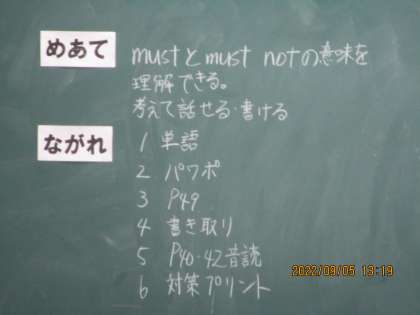 めあて
mustとmust notの意味を
理解できる。
考えて話せる・書ける
ながれ
1 単語
2 パワポ
3 P49
4 書き取り
5 P40・42音読
6 対策プリント
2022/09/05 13:19